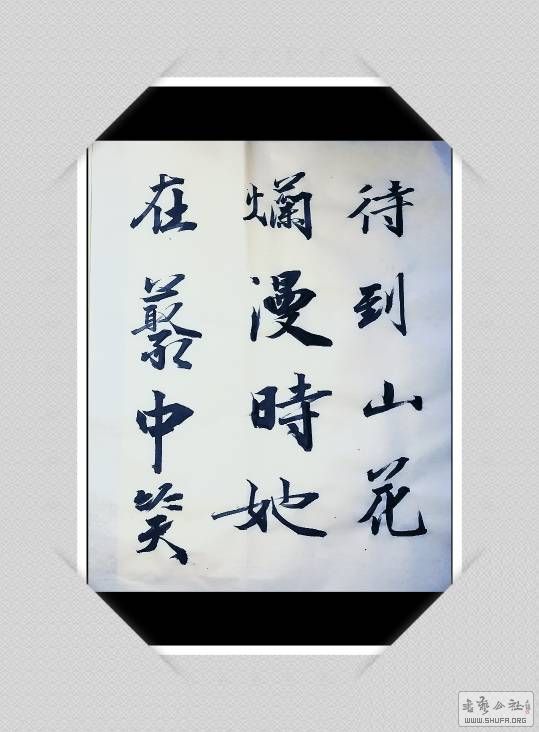 待到山花
爛漫時她
在藂中笑
书艺公社
WWW.SHUFA.ORG